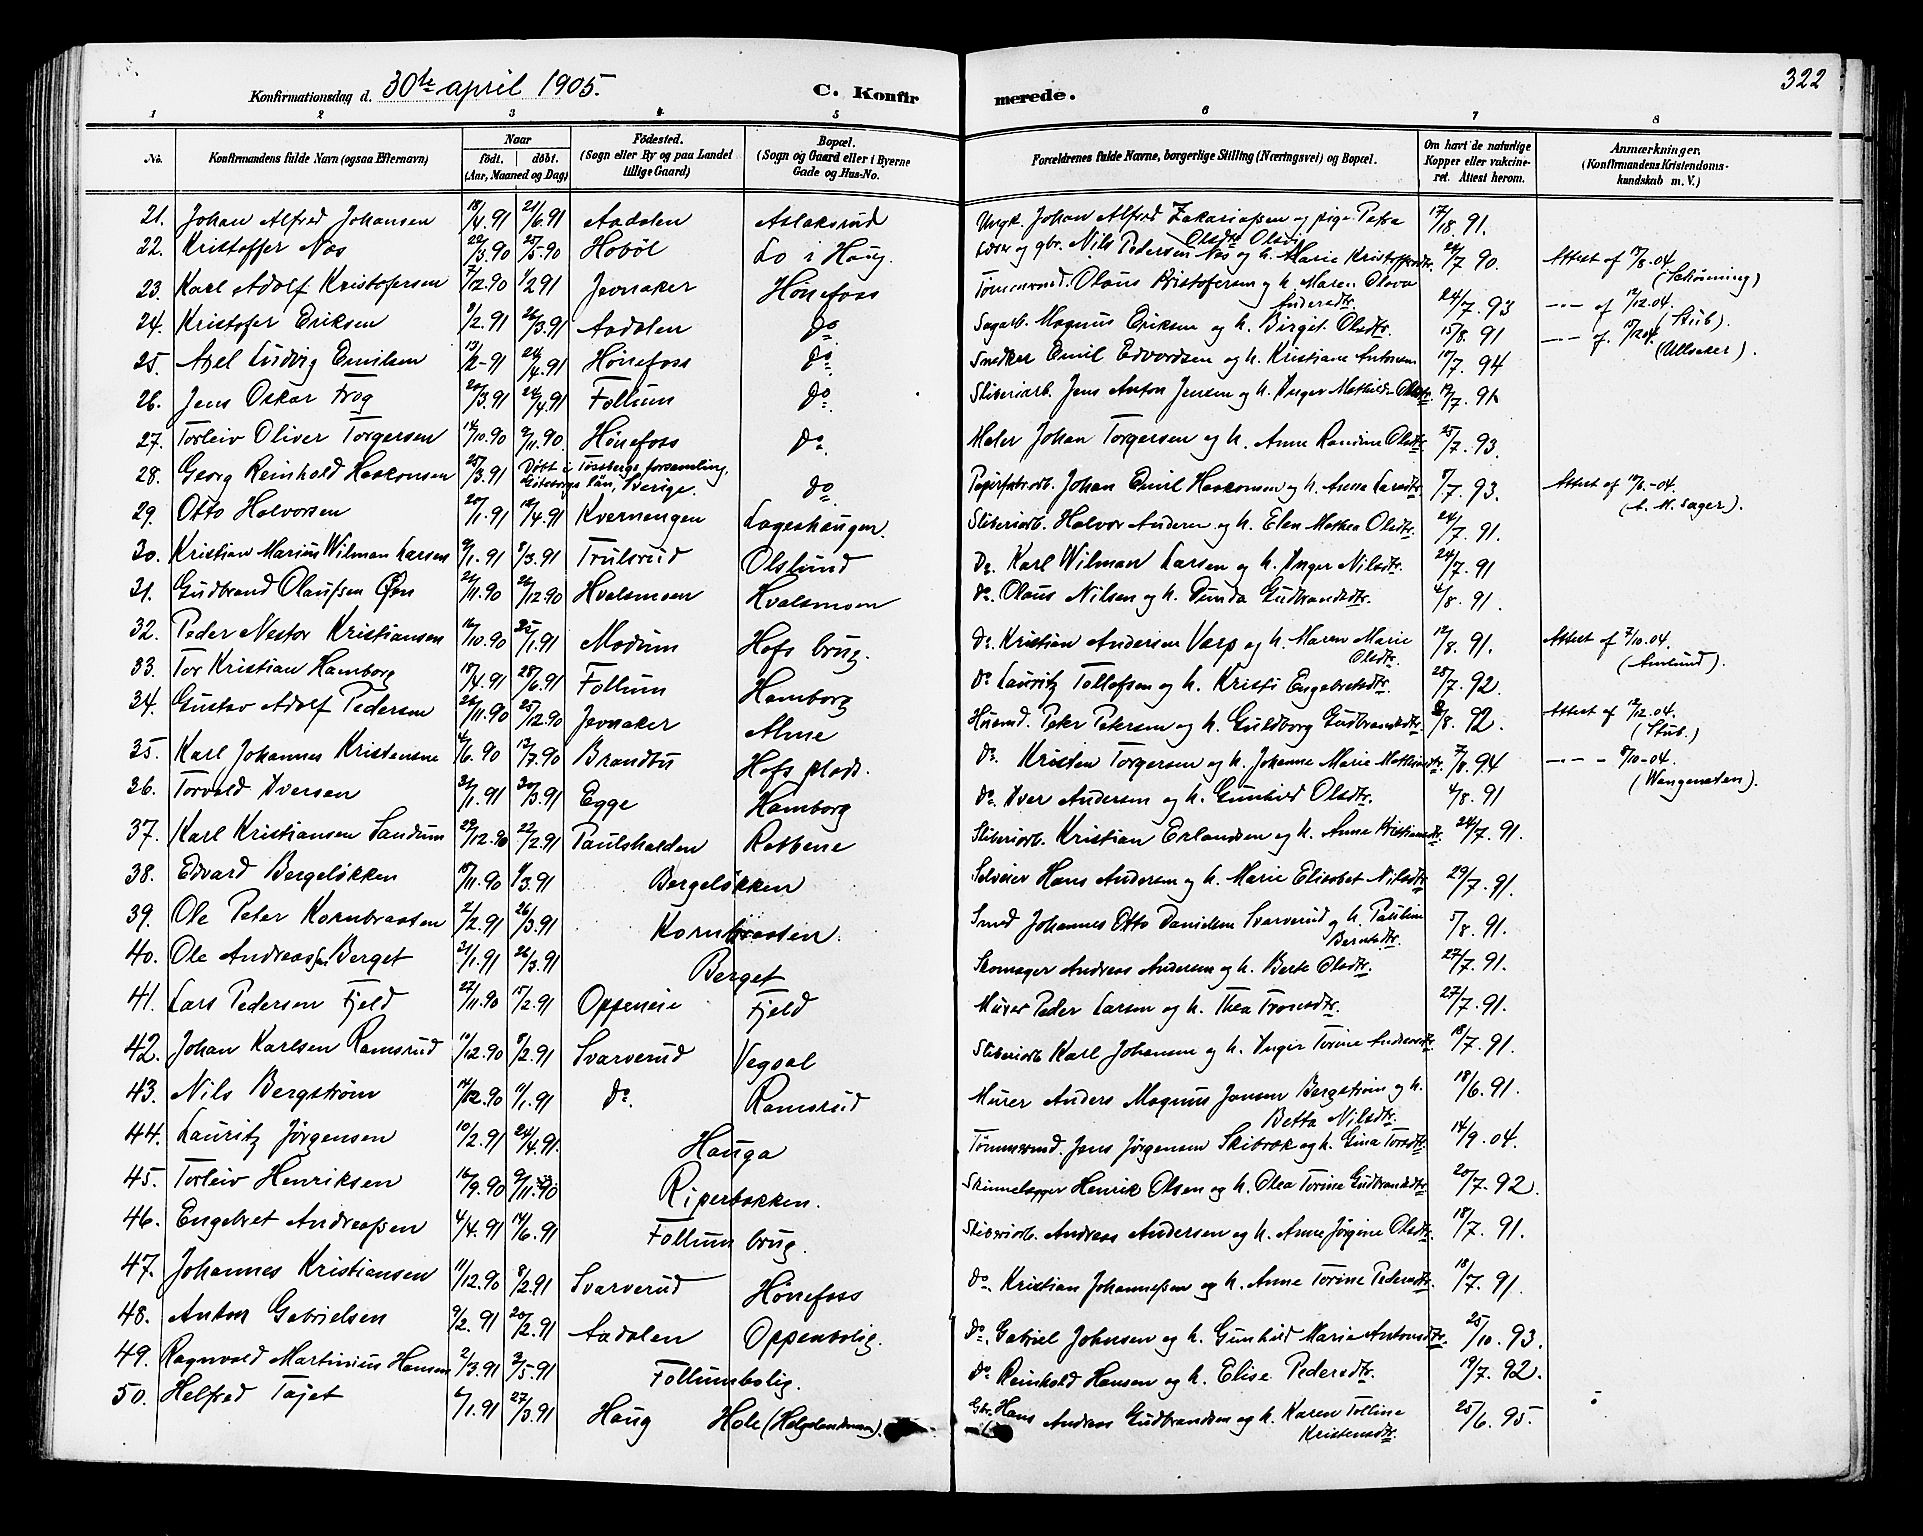 322
Konfirmationsdag d. 30te april 1905. C. Konfirmerede.
1 2 3 4 5 6 7 8
No. Konfirmandens fulde Navn (ogsaa Efternavn) Naar født. døbt. (Aar, Maaned og Dag) Fødested. (Sogn eller By og paa Landet tillige Gaard) Bopæl. (Sogn og Gaard eller i Byerne Gade og Hus-No. Forældrenes fulde Navne, borgerlige Stilling (Næringsvei) og Bopæl. Om havt de naturlige Kopper eller vakcineret. Attest herom. Anmærkninger, (Konfirmandens Kristendomskundskab m. V.)
21. Johan Alfred Johansen 18/4.91 21/6.91 Aadalen Aslaksrud Ungk. Johan Alfred Zakariassen og pige Petra Olsdtr. 17/18.91.
22. Kristoffer Næs 22/3.90 25/5-90 Hobøl Lo i Haug. Nils Pedersen Næs og h. Marie Kristoffersdtr. 24/7 90. Attest af 17/8.04
23. Karl Adolf Kristofersen 7/12.90 1/2 91 Jevnaker Hønefoss Tømmermd. Olaus Kristofersen og h. Maren Olava Andersdtr. 24/7.93 -"- af 12/12.04. (Stub).
24. Kristofer Eriksen 9/2.91 26/3.91 Aadalen do Sagarb. Magnus Eriksen og h. Birgit Olsdtr. 15/8.91 -"- af (Ullsaker).
25. Axel Ludvig Emilsen 13/2-91 24/4.91 Hønefoss do. Snedker Emil Edvardsen og h. Kristiane Antonsen 10/7.94
26. Jens Oskar Frog 20/3.91 24/4.91 Follum do Sliberiarb. Jens Anton Jensen og h. Inger Mathilde Olsdtr. 19/7.91
27. Torleiv Oliver Torgersen 14/10.90 9/11.90. Hønefoss do. Maler Johan Torgersen og h. Anne Randine Olsdtr. 25/7.93.
28. Georg Reinhold Haakonsen 25/3.91 Døbt i Tøssbergs forsamling, Göteborgs län, Sverige. do Papirfabrarb. Johan Emil Haakonsen og h. Anna Larsdtr. 7/7.93. Attest af 10/6.-04. (A. M. Sager).
29. Otto Halvorsen 20/1.91 12/4.91 Kvernengen Lageshaugen. Sliberiarb. Halvor Andersen og h. Elen Mathea Olsdtr. 24/7.91.
30. Kristian Marius Wilman Larsen 9/1.91 8/3.91 Trulsrud Olslund Do. Karl Wilman Larsen og h. Inger Nilsdtr. 24/7.91
31. Gudbrand Olaussen Øen 21/11.90 26/12 90 Hvalsmoen Hvalsmoen do. Olaus Nilsen og h. Gunda Gudbrandsdtr. 4/8.91.
32. Peder Nestor Kristiansen 16/10.90 25/1.91 Modum Hofs brug. do. Kristian Andersen Varp og h. Maren Marie Olsdtr. 12/8.91. Attest af 7/10.04.
33. Tor Kristian Hamborg 18/4.91 28/6.91 Follum Hamborg do Lauritz Tollefsen og h. Kristi Engebretsdtr. 28/7.92.
34. Gustav Adolf Pedersen 26/11.90 25/12.90 Jevnaker Alme Husmd. Peter Petersen og h. Guldborg Gudbrandsdtr. 8/8.92. Attest af 12/12.04. (Stub.)
35. Karl Johannes Kristensen 4/6.90 13/7.90 Brandbu Hofs plads. do. Kristen Torgersen og h. Johanne Marie 94 -"- 8/10-04.
36. Torvald Iversen 31/1.91 30/3.91 Egge Hamborg do. Iver Andersen og h. Gunhild Olsdtr. 4/8.91
37. Karl Kristiansen Sandum 29/12.90 22/2.91 Paulshalden Rabbene Sliberiarb. Kristian Erlandsen og h. Anna Kristiansdtr. 24/7.91.
38. Edvard Bergeløkken 15/11.90 1/3.91 Bergeløkken Selveier Hans Andersen og h. Marie Elisabet Nilsdtr. 29/7.91.
39. Ole Peter Kornbraaten 21/2.91 26/3.91 Kornbraaten. Smed Johannes Otto Danielsen Svarverud og h. Pauline Berntsdtr. 5/8.91.
40. Ole Andreassen Berget 31/1.91 26/3.91 Berget Skomager Andreas Andersen og h. Berte Olsdtr. 27/7.91.
41. Lars Pedersen Fjeld 27/11.90 15/2.91 Oppeneie Fjeld Murer Peder Larsen og h. Thea Tronsdtr. 27/7.91.
42. Johan Karlsen Ramsrud 10/12.90 8/2.91 Svarverud Vegsal Sliberiarb. Karl Johansen og h. Inger Torine Andersdtr. 18/7.91.
43. Nils Bergstrøm 14/12.90 11/1.91 do. Ramsrud Murer Anders Magnus Jansen Bergstrøm og h. Betta Nilsdtr. 18/6.91.
44. Lauritz Jørgensen 10/2.91 24/4.91. Hauga Tømmermd. Jens Jørgensen Skibrek og h. Gina Torsdtr. 14/9.04.
45. Torleiv Henriksen 16/9.90 9/11.90 Riperbakken. Henrik Olsen og h. Olea Torine Gudbrandsdtr. 20/7.92.
46. Engebret Andreassen 4/4.91 14/6.91 Follum brug. Sliberiarb. Andreas Andersen og h. Anne Jørgine Olsdtr. 18/7.91.
47. Johannes Kristiansen 11/12.90 8/2.91 Svarverud Hønefoss do. Kristian Johannessen og h. Anne Torine Pedersdtr. 18/7.91.
48. Anton Gabrielsen 9/2.91 20/2.91 Aadalen Oppenbolig. do. Gabriel Johnsen og h. Gunhild Marie Antonsdtr. 25/10.93.
49. Ragnvald Martinius Hansen 2/3.91 3/5.91 Follumsbolig. do Reinhold Hansen og h. Elise Pedersdtr. 19/7.92.
50. Helfred Tajet 6/1.91 27/3.91 Haug Hole Gbr. Hans Andreas Gudbrandsen og h. Karen Tolline Kristensdtr. 25/6.95.